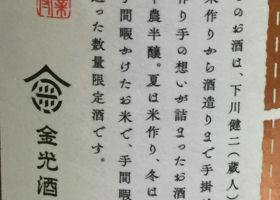 のお酒は、下川健二(蔵人)
米作りから酒造りまで手掛
作り手の想いが詰まったお酒
半農半醸。夏は米作り、冬は
手間暇かけたお米で、手間暇
造った数量限定酒です。
金光酒